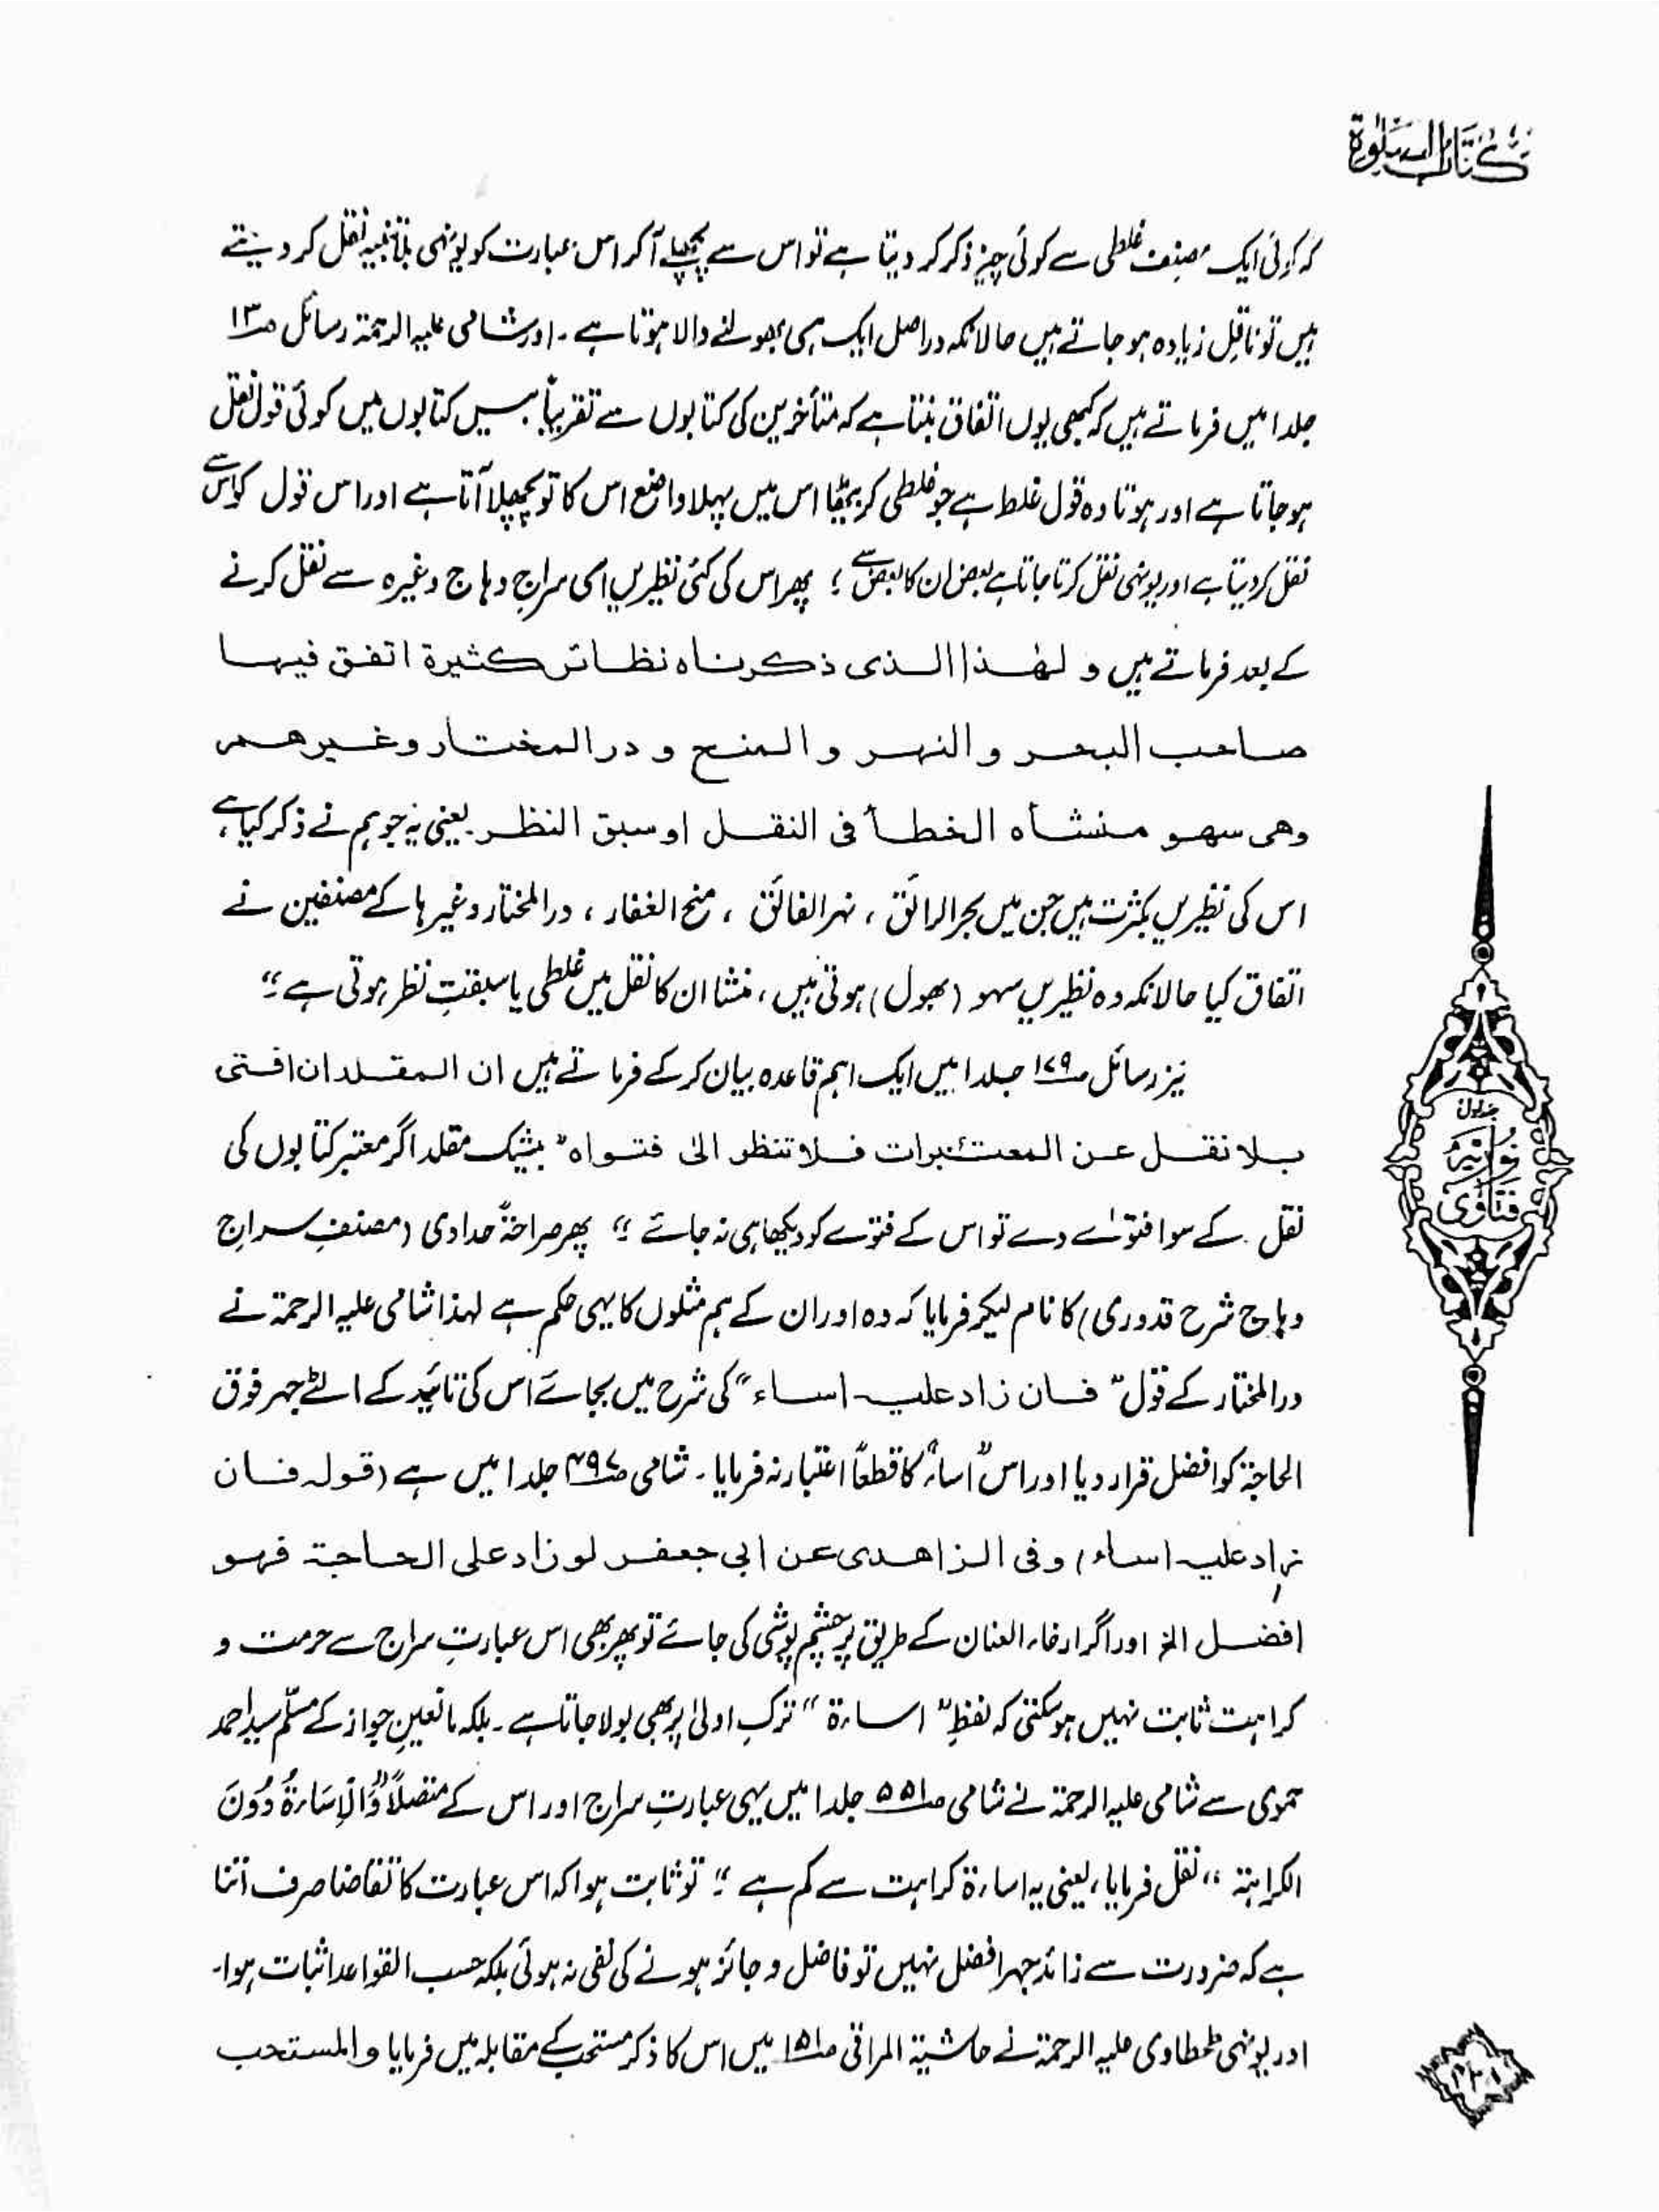 كتاب الصلوٰة
کہ کوئی ایک مصنف غلطی سے کوئی چیز ذکر کر دیتا ہے تو اس سے پچھلے آ کر اس عبارت کو یونہی بلا تنبیہ نقل کر دیتے
ہیں تو ناقل زیادہ ہو جاتے ہیں حالانکہ دراصل ایک ہی بھولنے والا ہوتا ہے۔ اور شامی علیہ الرحمۃ رسائل ص۱۳
جلد ۱ میں فرماتے ہیں کہ کبھی یوں اتفاق بنتا ہے کہ متأخرین کی کتابوں سے تقریباً بیس کتابوں میں کوئی قول نقل
ہو جاتا ہے اور ہوتا وہ قول غلط ہے جو غلطی کر بیٹھا اس میں پہلا واضع اس کا تو پچھلا آتا ہے اور اس قول کو اس سے
نقل کر دیتا ہے اور یونہی نقل کرتا جاتا ہے بعض ان کا بعض سے ؛ پھر اس کی کئی نظیریں اسی سراج وہاج وغیرہ سے نقل کرنے
کے بعد فرماتے ہیں و لهٰذا الذى ذكرناه نظائر كثيرة اتفق فيها
صاحب البحر و النهر و المنح و در المختار وغيرهم
وهى سهو منشأه الخطأ فى النقل او سبق النظر۔ یعنی یہ جو ہم نے ذکر کیا ہے،
اس کی نظیریں بکثرت ہیں جن میں بحر الرائق ، نہر الفائق ، منح الغفار ، در المختار وغیرہا کے مصنفین نے
اتفاق کیا حالانکہ وہ نظیریں سہو (بھول) ہوتی ہیں، منشا ان کا نقل میں غلطی یا سبقتِ نظر ہوتی ہے ؛"
نیز رسائل ص۱۷۹ جلد ۱ میں ایک اہم قاعدہ بیان کر کے فرماتے ہیں ان المقلد ان افتى
بلا نقل عن المعتبرات فلا تنظر الىٰ فتواه" بیشک مقلد اگر معتبر کتابوں کی
نقل کے سوا فتوٰے دے تو اس کے فتوے کو دیکھا ہی نہ جائے ؛" پھر صراحۃً حدادی (مصنفِ سراج
وہاج شرح قدوری) کا نام لیکر فرمایا کہ وہ اور ان کے ہم مثلوں کا یہی حکم ہے لہذا شامی علیہ الرحمۃ نے
در المختار کے قول "فان زاد عليه اساء" کی شرح میں بجائے اس کی تائید کے الٹے جہر فوق
الحاجۃ کو افضل قرار دیا اور اس "اساء" کا قطعاً اعتبار نہ فرمایا۔ شامی ص۴۹۷ جلد ۱ میں ہے (قوله فان
زاد عليه اساء) وفى الزاهدى عن ابى جعفر لو زاد على الحاجة فهو
افضل الخ اور اگر ارخاء العنان کے طریق پر چشم پوشی کی جائے تو پھر بھی اس عبارتِ سراج سے حرمت و
کراہت ثابت نہیں ہو سکتی کہ لفظِ "اساءة" ترکِ اولیٰ پر بھی بولا جاتا ہے۔ بلکہ مانعینِ جواز کے مسلّم سید احمد
حموی سے شامی علیہ الرحمۃ نے شامی ص۵۵۱ جلد ۱ میں یہی عبارتِ سراج اور اس کے متصلاً "وَالْاِسَاءَةُ دُوْنَ
الکراہۃ" نقل فرمایا، یعنی یہ اساءۃ کراہت سے کم ہے ؛" تو ثابت ہوا کہ اس عبارت کا تقاضا صرف اتنا
ہے کہ ضرورت سے زائد جہر افضل نہیں تو فاضل و جائز ہونے کی نفی نہ ہوئی بلکہ حسب القواعد اثبات ہوا۔
اور یونہی طحطاوی علیہ الرحمۃ نے حاشیۃ المراقی ص۱۵۱ میں اس کا ذکر مستحب کے مقابلہ میں فرمایا والمستحب
جلد اول
فتاوٰی
نوریہ